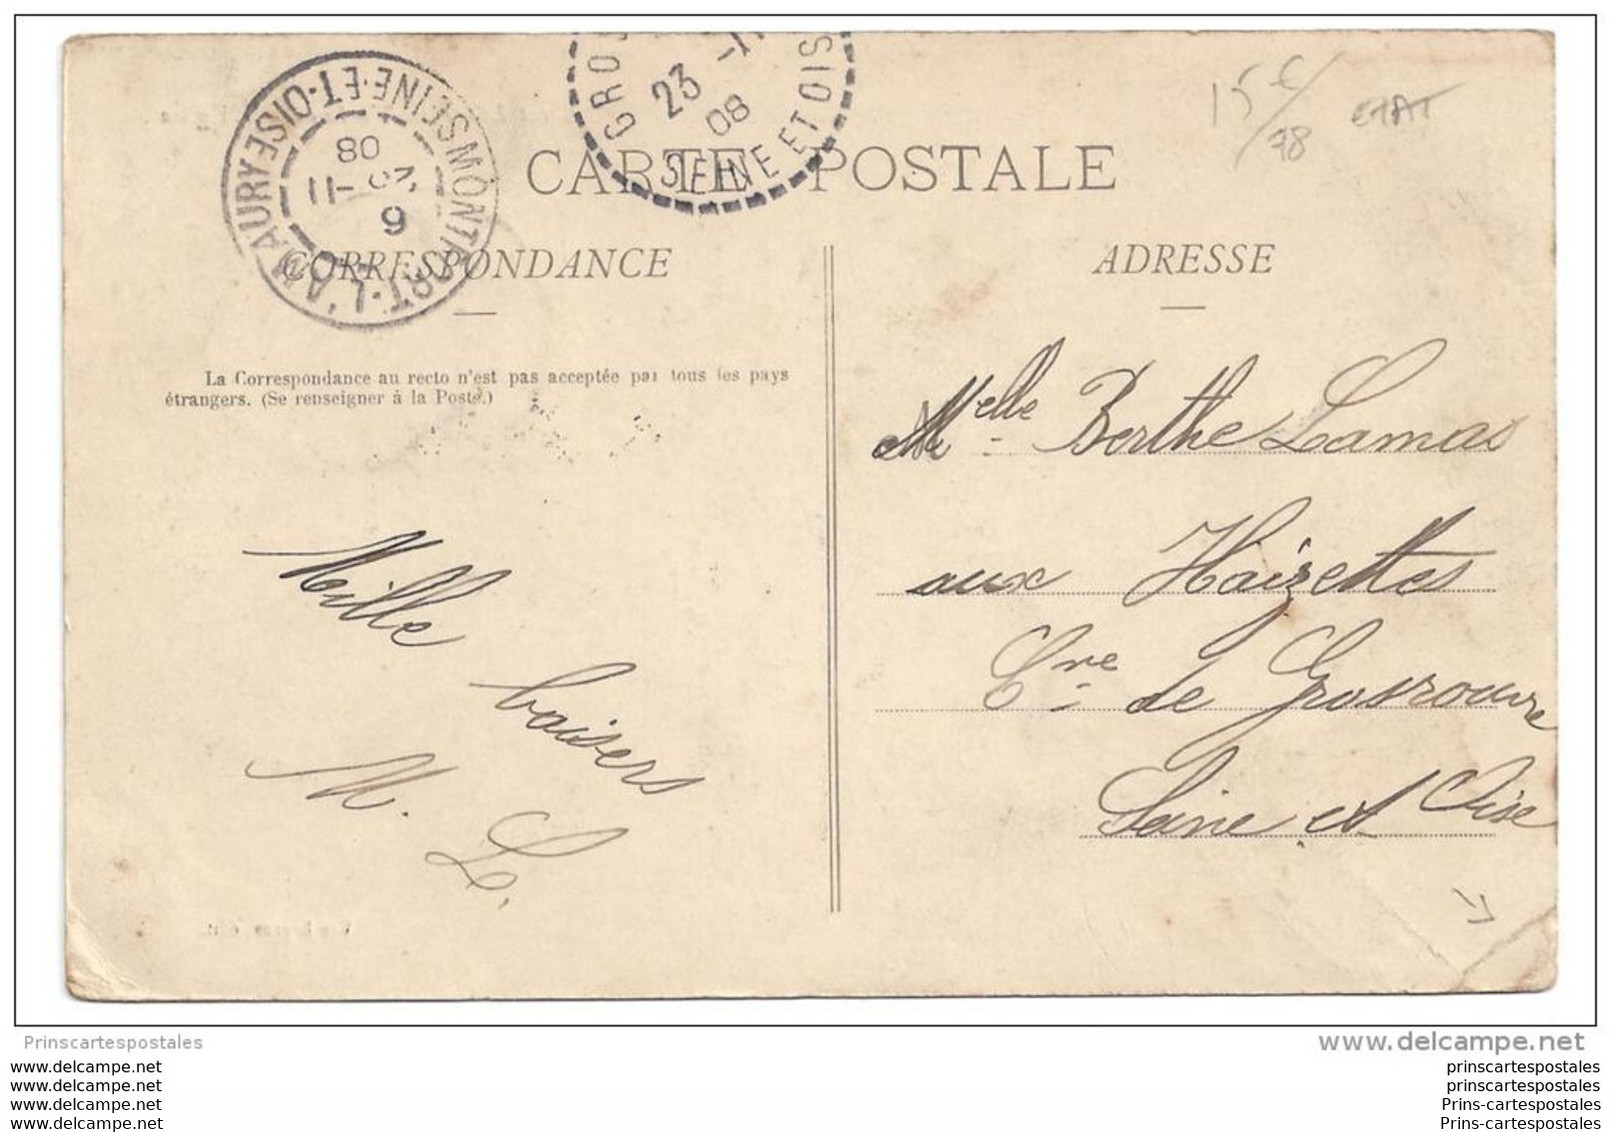 MONTFORT-L'AMAURY SEINE-ET-OISE
11 - 9
08
GROS
23 -11
08
SEINE ET OISE
15 €/78 ETAT
CARTE POSTALE
CORRESPONDANCE
ADRESSE
La Correspondance au recto n'est pas acceptée par tous les pays
étrangers. (Se renseigner à la Poste.)
Melle Berthe Lamas
aux Haizettes
Cne de Grosrouvre
Seine et Oise
Mille
baisers
M. L.
Prinscartespostales
www.delcampe.net
www.delcampe.net
www.delcampe.net
www.delcampe.net
www.delcampe.net
prinscartespostales
prinscartespostales
Prins-cartespostales
Prins-cartespostales